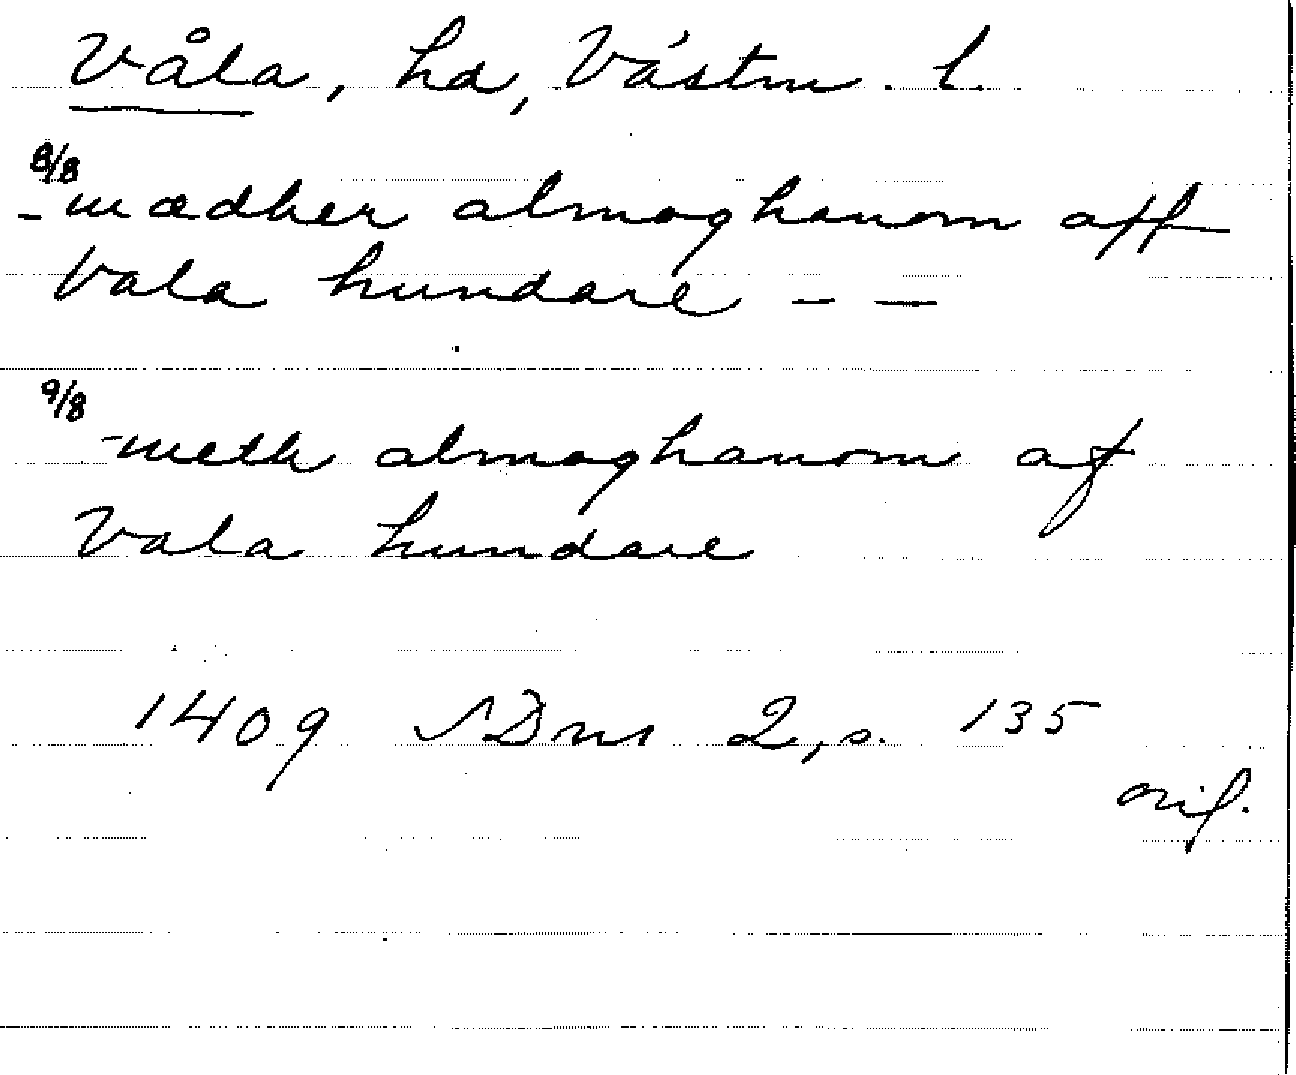 Våla, hd, Västm. l.
8/8
- mædher almoghanom aff
Vala hundare - -
9/8
- meth almoghanom af
Vala hundare
1409 SDns 2, s. 135
orig.